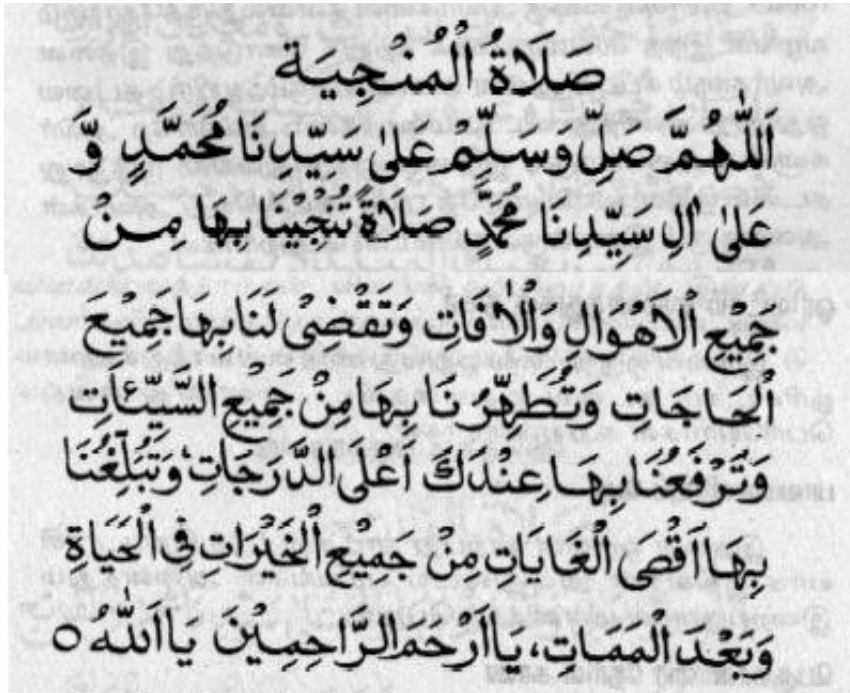 صَلَاةُ الْمُنْجِيَة
اَللّٰهُمَّ صَلِّ وَسَلِّمْ عَلٰى سَيِّدِنَا مُحَمَّدٍ وَّ
عَلٰى اٰلِ سَيِّدِنَا مُحَمَّدٍ صَلَاةً تُنْجِيْنَا بِهَا مِنْ
جَمِيْعِ الْاَهْوَالِ وَالْاٰفَاتِ وَتَقْضِىْ لَنَا بِهَا جَمِيْعَ
الْحَاجَاتِ وَتُطَهِّرُنَا بِهَا مِنْ جَمِيْعِ السَّيِّئٰاتِ
وَتَرْفَعُنَا بِهَا عِنْدَكَ اَعْلَى الدَّرَجَاتِ، وَتُبَلِّغُنَا
بِهَا اَقْصَى الْغَايَاتِ مِنْ جَمِيْعِ الْخَيْرَاتِ فِى الْحَيَاةِ
وَبَعْدَ الْمَمَاتِ، يَا اَرْحَمَ الرَّاحِمِيْنَ يَا اَللّٰهُ ه